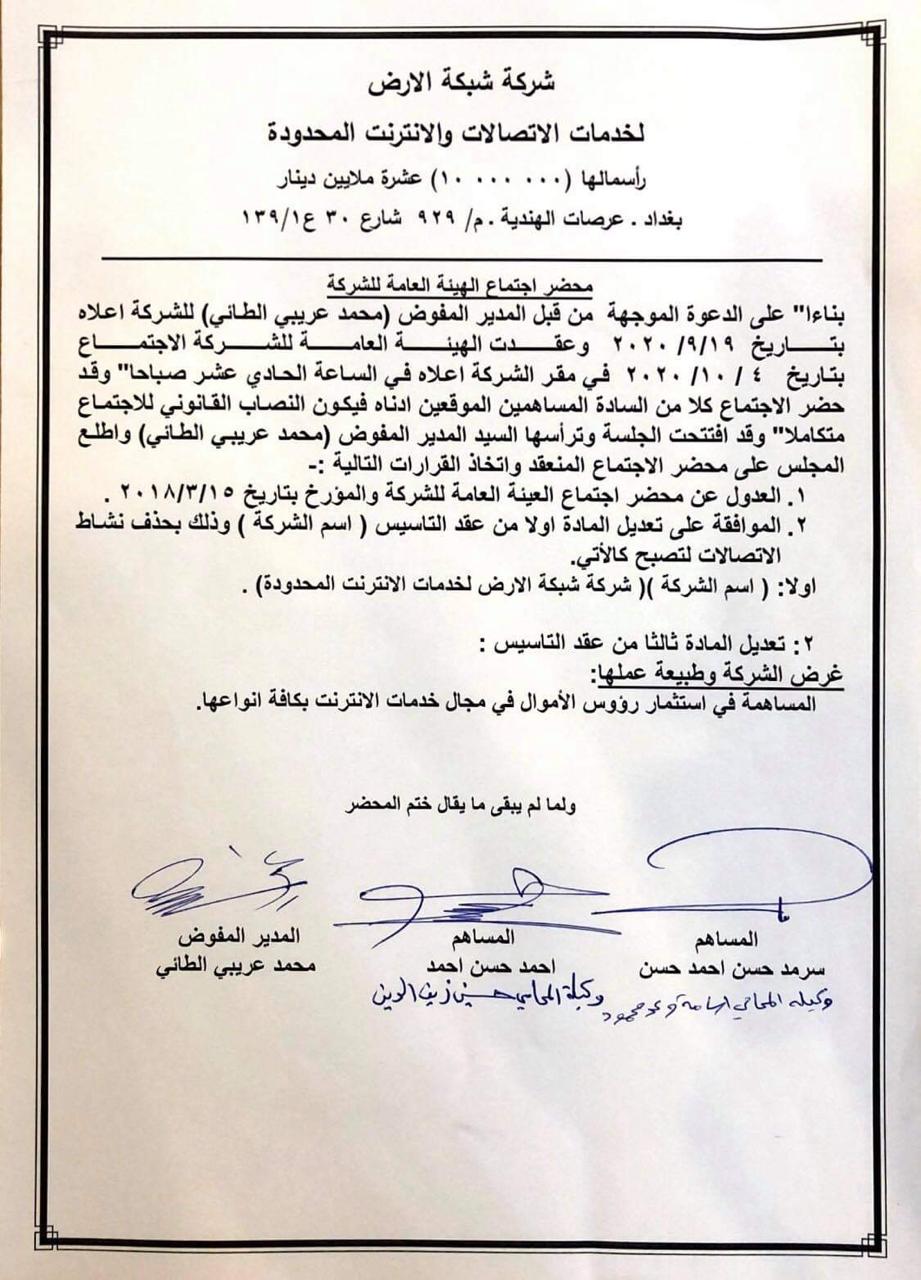 شركة شبكة الارض
لخدمات الاتصالات والانترنت المحدودة
رأسمالها (١٠ ٠٠٠ ٠٠٠) عشرة ملايين دينار
بغداد . عرصات الهندية . م/ ٩٢٩ شارع ٣٠ ع١٣٩/١
محضر اجتماع الهيئة العامة للشركة
بناءا" على الدعوة الموجهة من قبل المدير المفوض (محمد عريبي الطائي) للشركة اعلاه
بتاريخ ٢٠٢٠/٩/١٩ وعقدت الهيئة العامة للشركة الاجتماع
بتاريخ ٤ / ١٠/ ٢٠٢٠ في مقر الشركة اعلاه في الساعة الحادي عشر صباحا" وقد
حضر الاجتماع كلا من السادة المساهمين الموقعين ادناه فيكون النصاب القانوني للاجتماع
متكاملا" وقد افتتحت الجلسة وترأسها السيد المدير المفوض (محمد عريبي الطائي) واطلع
المجلس على محضر الاجتماع المنعقد واتخاذ القرارات التالية :-
١. العدول عن محضر اجتماع العينة العامة للشركة والمؤرخ بتاريخ ٢٠١٨/٣/١٥ .
٢. الموافقة على تعديل المادة اولا من عقد التاسيس ( اسم الشركة ) وذلك بحذف نشاط
الاتصالات لتصبح كالأتي.
اولا: ( اسم الشركة )( شركة شبكة الارض لخدمات الانترنت المحدودة) .
٢: تعديل المادة ثالثا من عقد التاسيس :
غرض الشركة وطبيعة عملها:
المساهمة في استثمار رؤوس الأموال في مجال خدمات الانترنت بكافة انواعها.
ولما لم يبقى ما يقال ختم المحضر
المساهم المساهم المدير المفوض
سرمد حسن احمد حسن احمد حسن احمد محمد عريبي الطائي
وكيله المحامي اسامة محمود وكيله المحامي حسين زين الدين